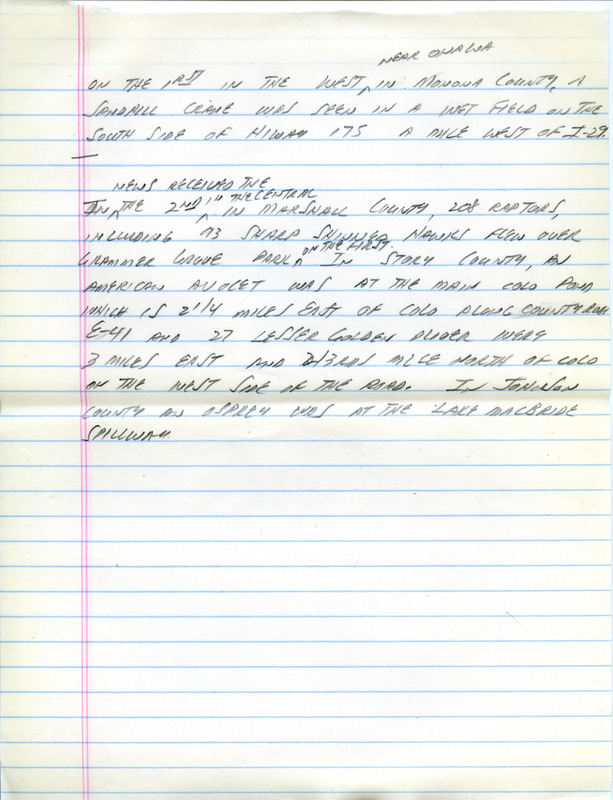 NEAR ONAWA
ON THE 1ST IN THE WEST ^ IN MONONA COUNTY, A
SANDHILL CRANE WAS SEEN IN A WET FIELD ON THE
SOUTH SIDE OF HIWAY 175 A MILE WEST OF I-29.
—
NEWS RECEIVED THE
IN THE CENTRAL
IN ^ THE 2ND ^ IN MARSHALL COUNTY, 208 RAPTORS,
INCLUDING 73 SHARP SHINNED HAWKS FLEW OVER
ON THE FIRST.
GRAMMER GROVE PARK ^ IN STORY COUNTY, AN
AMERICAN AVOCET WAS AT THE MAIN COLO POND
WHICH IS 2 1/4 MILES EAST OF COLO ALONG COUNTY ROAD
E-41 AND 27 LESSER GOLDEN PLOVER WERE
3 MILES EAST AND 2/3RDS MILE NORTH OF COLO
ON THE WEST SIDE OF THE ROAD. IN JOHNSON
COUNTY AN OSPREY WAS AT THE LAKE MACBRIDE
SPILLWAY.